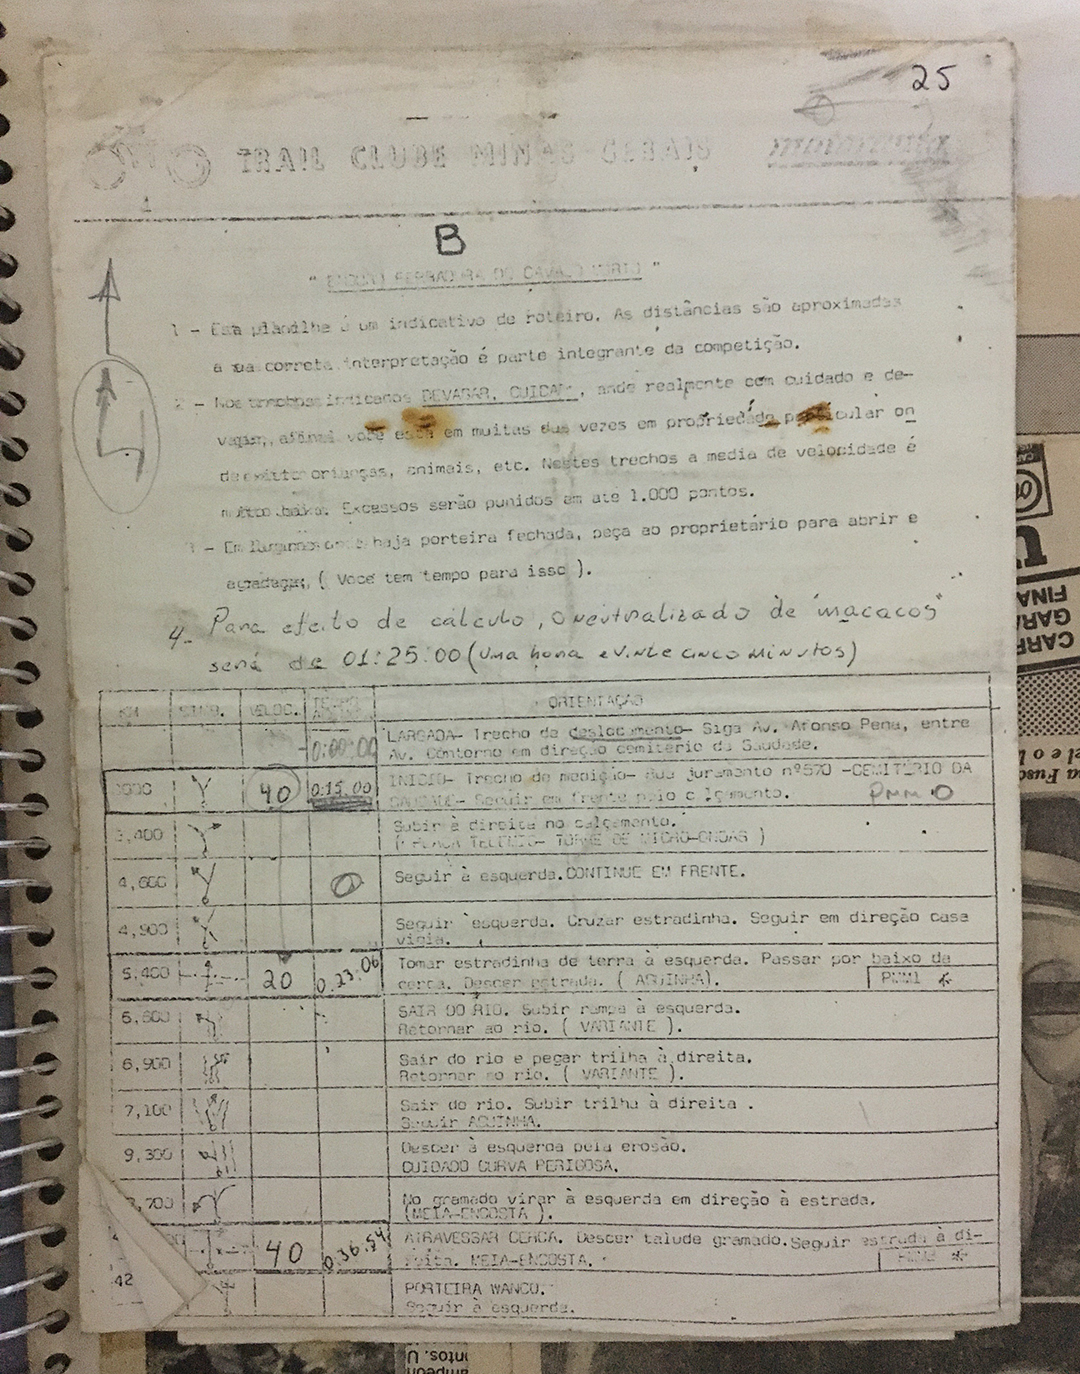 25
TRAIL CLUBE MINAS GERAIS
B
" ENDURO FERRADURA DO CAVALO MORTO "
1 - Esta planilha é um indicativo de roteiro. As distâncias são aproximadas
a sua correta interpretação é parte integrante da competição.
2 - Nos trechos indicados DEVAGAR, CUIDADO, ande realmente com cuidado e de-
vagar, afinal você está em muitas das vezes em propriedade particular on
de existe crianças, animais, etc. Nestes trechos a media de velocidade é
muito baixa. Excessos serão punidos em até 1.000 pontos.
3 - Em lugares onde haja porteira fechada, peça ao proprietário para abrir e
agradeça; ( Você tem tempo para isso ).
4- Para efeito de cálculo, o neutralizado de "macacos"
será de 01:25:00 (uma hora e vinte cinco minutos)
KM SINR. VELOC. ORIENTAÇÃO
0:00:00 LARGADA- Trecho de deslocamento- Siga Av. Afonso Pena, entre
Av. Contorno em direção cemitério da Saudade.
40 0:15.00 INICIO- Trecho de medição- Rua juramento nº570 -CEMITÉRIO DA
SAUDADE- Seguir em frente pelo calçamento. PMM 0
3,400 Subir à direita no calçamento.
( PLACA TELEMIG- TORRE DE MICRO-ONDAS )
4,600 Seguir à esquerda. CONTINUE EM FRENTE.
4,900 Seguir esquerda. Cruzar estradinha. Seguir em direção casa
vigia.
5,400 20 0.23:06 Tomar estradinha de terra à esquerda. Passar por baixo da
cerca. Descer estrada. ( AGUINHA). PMM1 *
6,600 SAIR DO RIO. Subir rampa à esquerda.
Retornar ao rio. ( VARIANTE ).
6,900 Sair do rio e pegar trilha à direita.
Retornar ao rio. ( VARIANTE ).
7,100 Sair do rio. Subir trilha à direita .
Seguir AGUINHA.
9,300 Descer à esquerda pela erosão.
CUIDADO CURVA PERIGOSA.
,700 No gramado virar à esquerda em direção à estrada.
(MEIA-ENCOSTA ).
40 0:36.54 ATRAVESSAR CERCA. Descer talude gramado. Seguir estrada à di-
reita. MEIA-ENCOSTA. PMM2 *
42 PORTEIRA WANCO.
Seguir à esquerda.